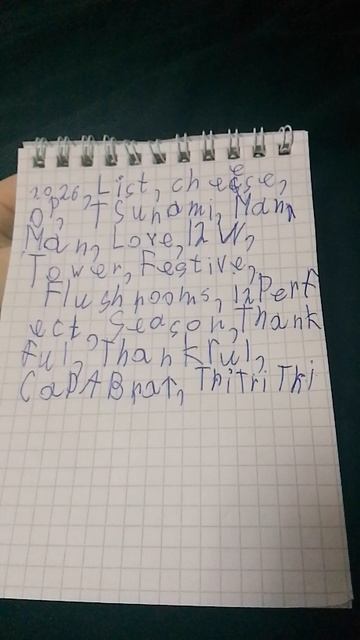 2026, List, cheese,
Op, Tsunami, Man,
Man, Love, 12 W,
Tower, Festive,
Flushrooms, 12Perf
ect, Season, Thank
Ful, Thankful,
CaPABrat, ThiTri Thi